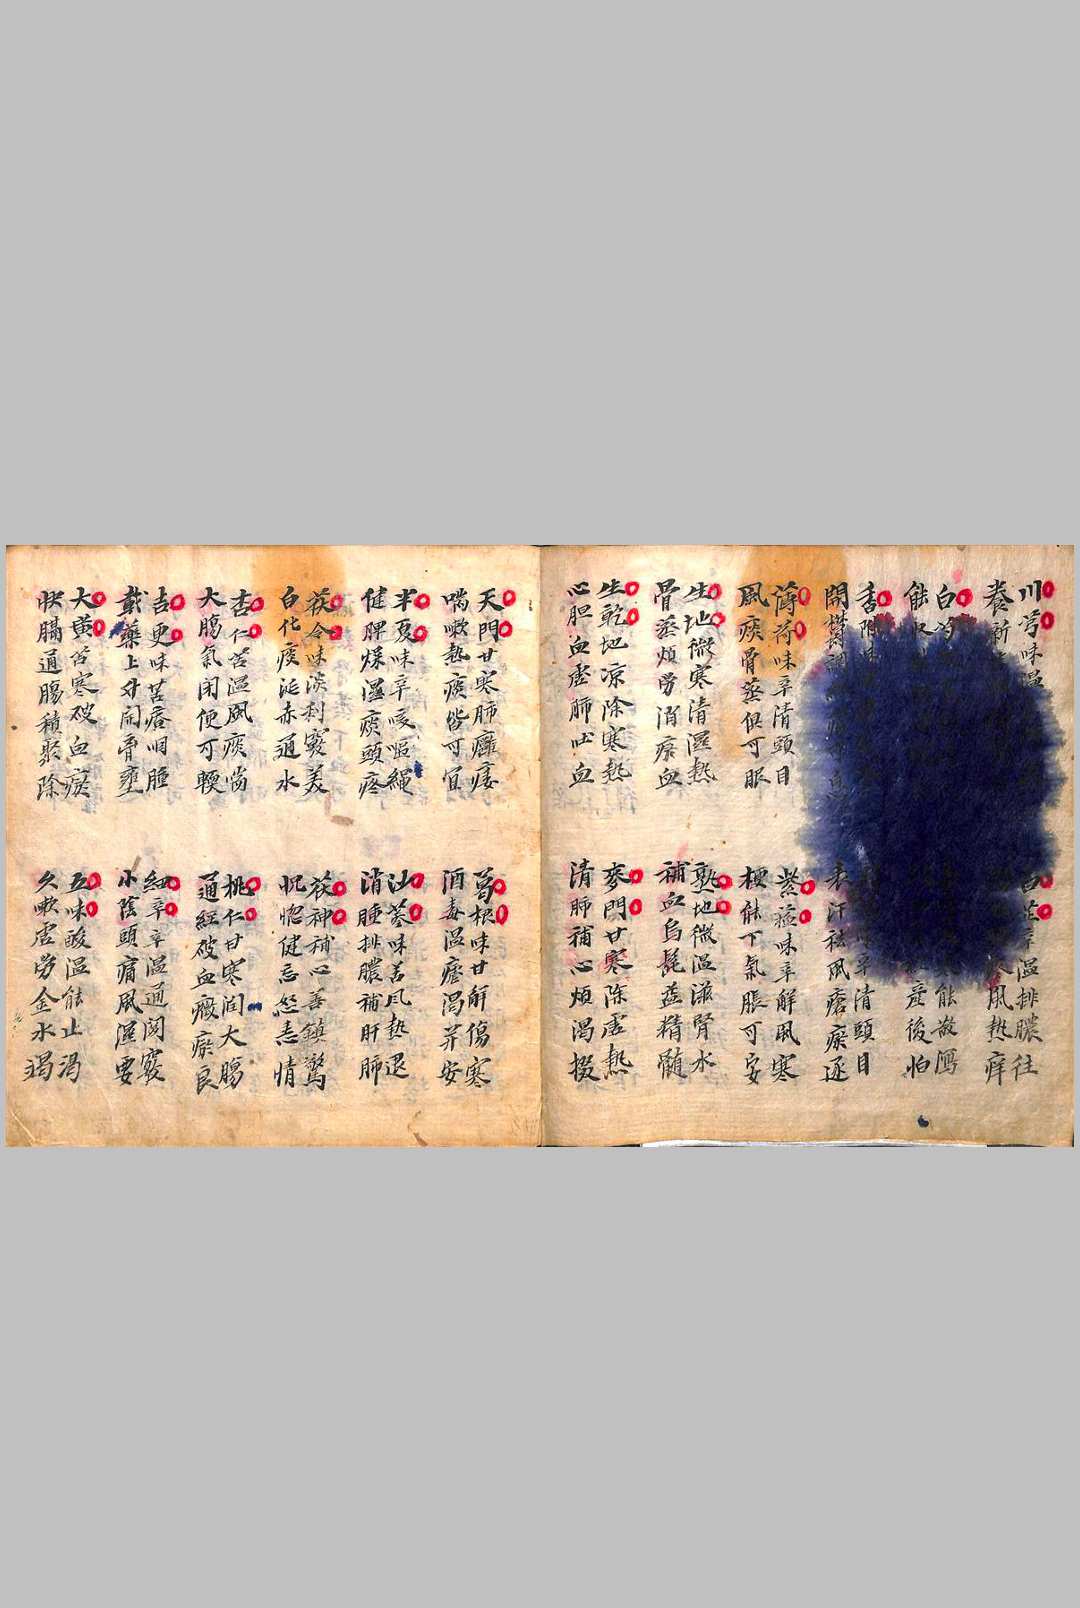 川芎味温
養新
白
能
香
開欝
薄荷味辛清頭目
風痰骨蒸俱可服
生地微寒清濕熱
骨蒸煩労消瘀血
生乾地凉除寒熱
心胆血虚肺吐血
温排膿往
風熱痒
能散瀉
産後怕
清頭目
表汗祛風瘡瘀逐
紫蘓味辛解風寒
梗能下氣脹可安
熟地微温滋腎水
補血烏髭益精髓
麥門甘寒除虚熱
清肺補心煩渴掇
天門甘寒肺癰痿
喘嗽熱痰皆可宜
半夏味辛咳嘔繩
健脾燥濕痰頭疼
茯令味淡利竅美
白化痰涎赤通水
杏仁苦温風痰喘
大膓氣閉便可輭
吉更味苦瘡咽腫
載藥上升開胷壅
大黄苦寒破血瘀
快膈通腸積聚除
葛根味甘解傷寒
酒毒温瘧渴并安
沙葠味苦風熱退
消腫排膿補肝肺
茯神補心善鎮驚
恍惚健忘怒恚情
桃仁甘寒閏大膓
通經破血癥瘀良
細辛辛温通関竅
小陰頭痛風濕要
五味酸温能止渴
久嗽虚労金水竭